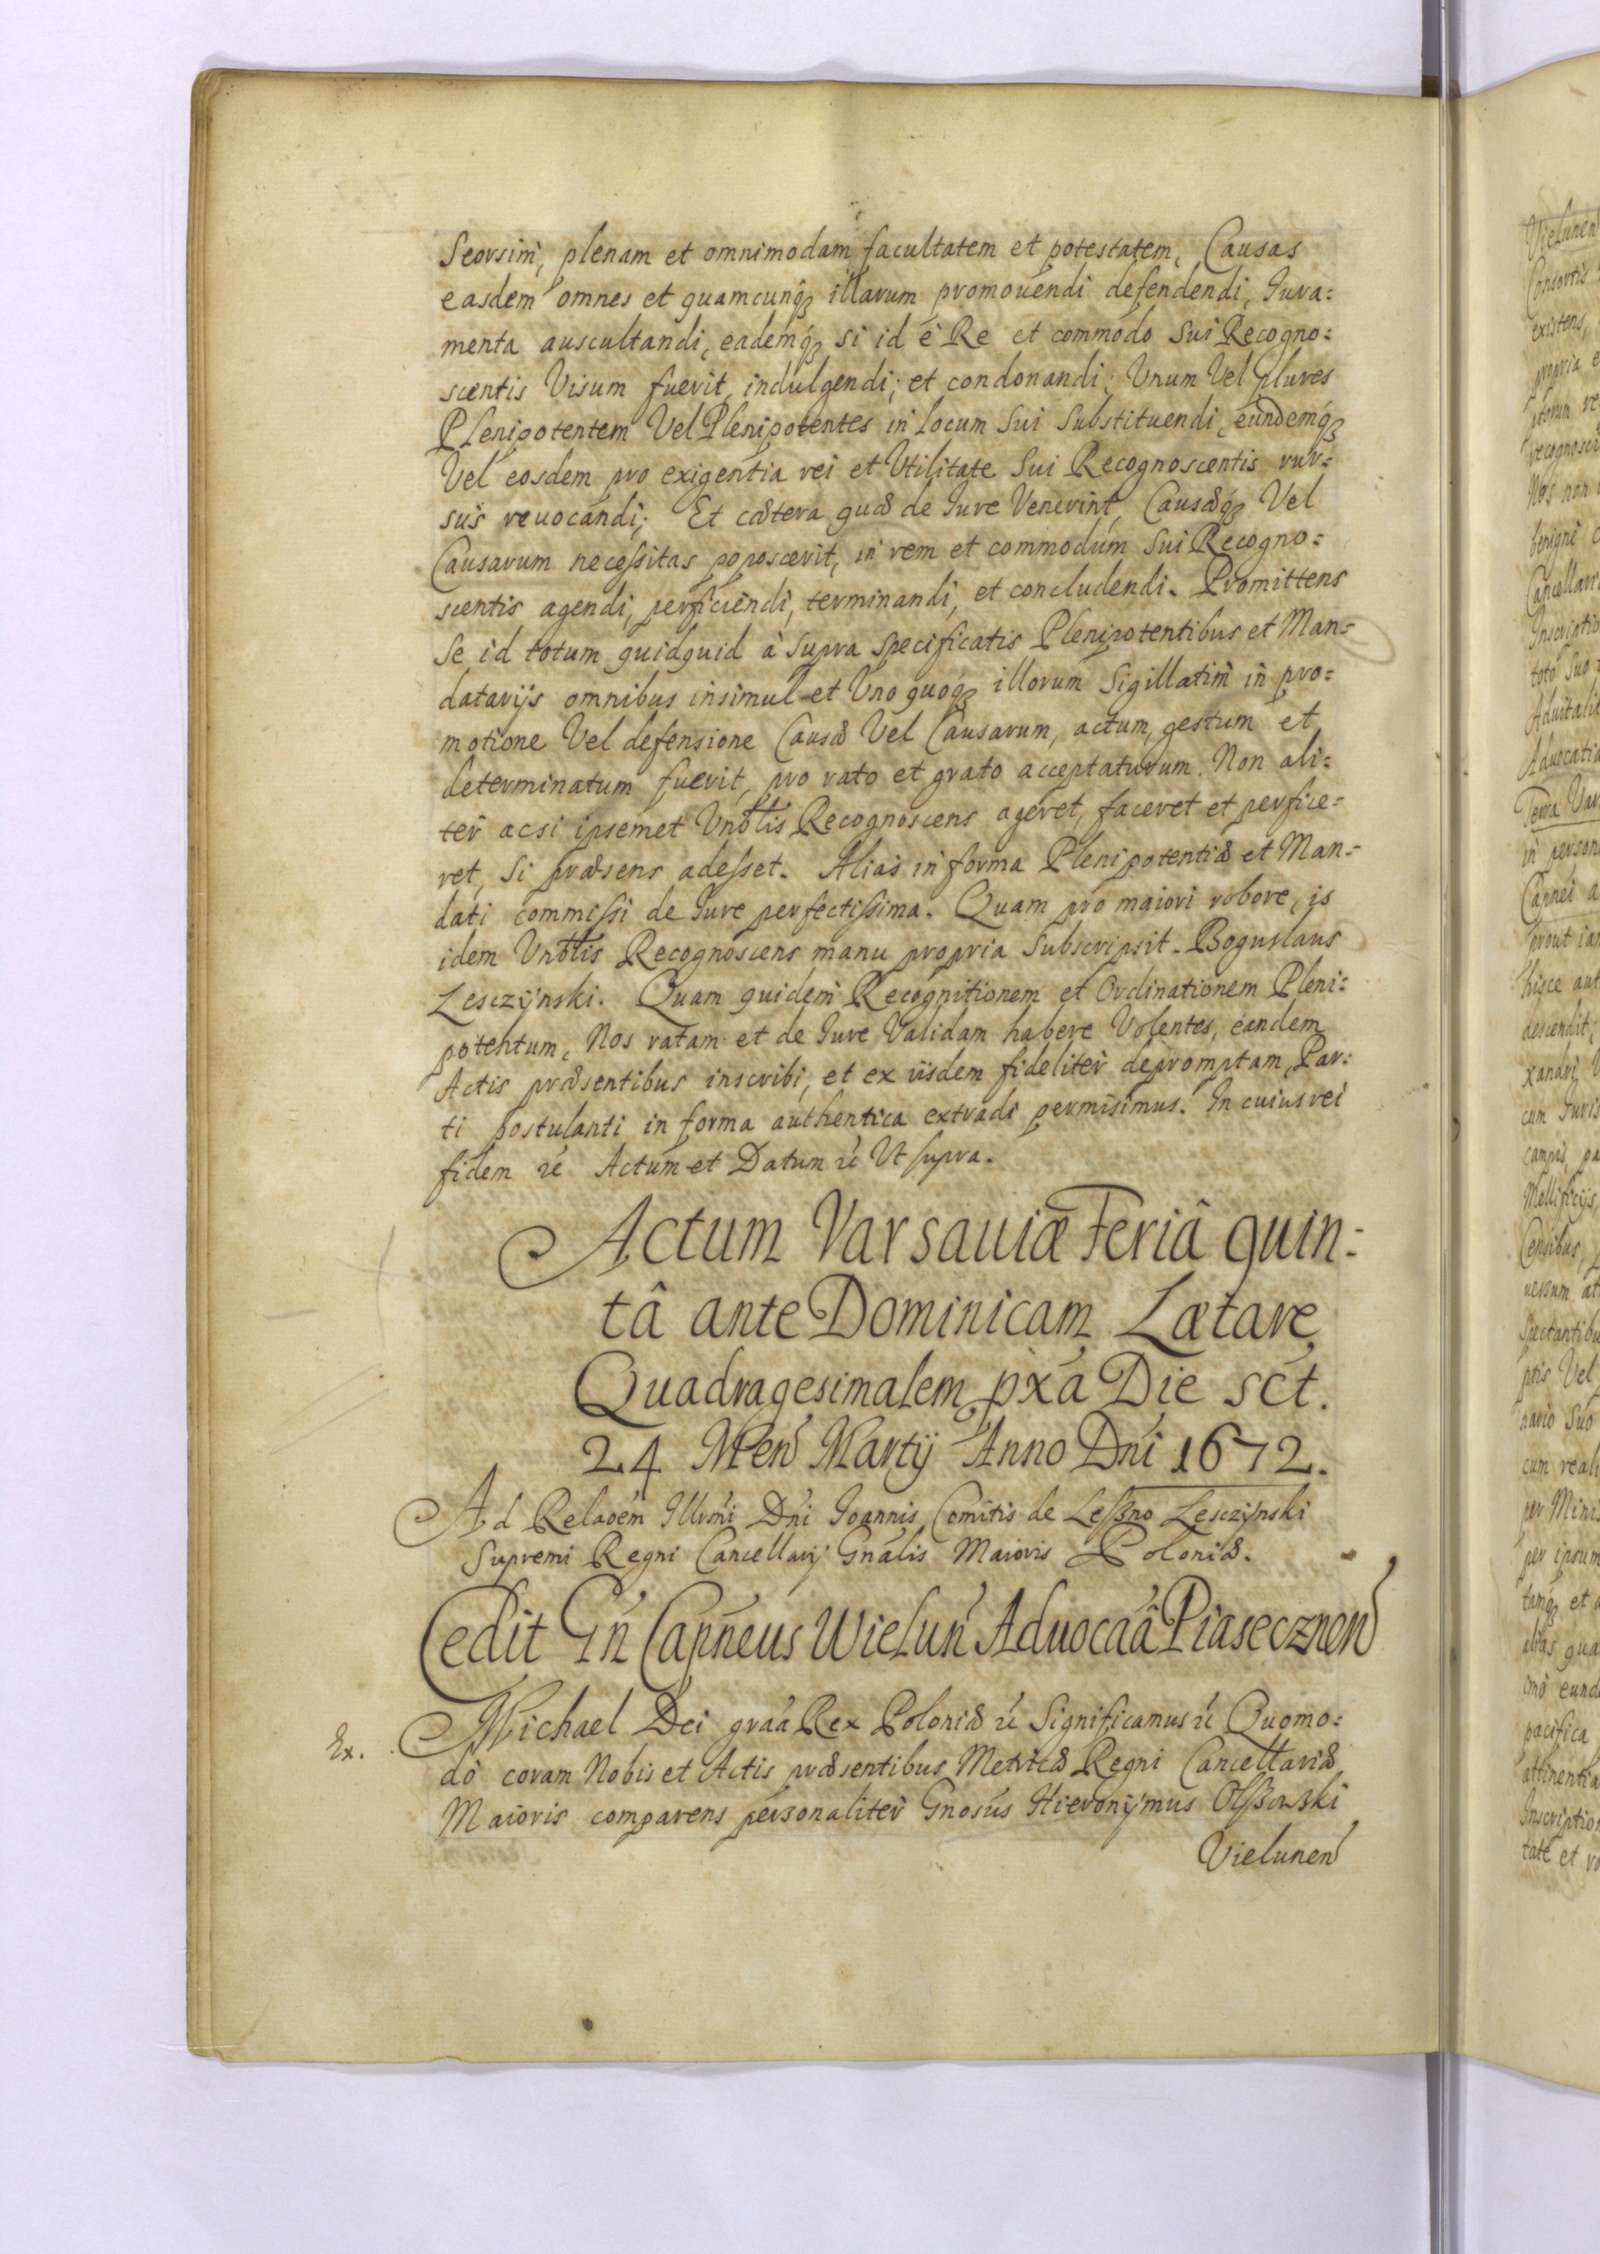 Seorsim, plenam et omnimodam facultatem et potestatem, Causas
easdem omnes et quamcunq₃ illarum promouendi defendendi, Iura=
menta auscultandi, eademq₃ si id è Re et commodo Sui Recogno=
scentis Visum fuerit, indulgendi; et condonandi; Unum Vel plures
Plenipotentem Vel Plenipotentes in locum Sui Substituendi, eundemq₃
Vel eosdem pro exigentia rei et Utilitate Sui Recognoscentis rur=
sus reuocandi; Et cætera quæ de Iure Venerint, Causæq₃ Vel
Causarum necessitas poposcerit, in rem et commodum Sui Recogno=
scentis agendi, perficiendi, terminandi, et concludendi. Promittens
Se id totum quidquid à Supra Specificatis Plenipotentibus et Man=
datarijs omnibus insimul et Uno quoq₃ illorum Sigillatim in pro=
motione Vel defensione Causæ Vel Causarum, actum, gestum et
determinatum fuerit, pro rato et grato acceptaturum. Non ali=
ter acsi ipsemet Unoblis Recognoscens ageret, faceret et perfice=
ret, Si præsens adesset. Alias in forma Plenipotentiæ et Man=
dati commissi de Iure perfectissima. Quam pro maiori robore, is
idem Unoblis Recognoscens manu propria Subscripsit. Boguslaus
Lesczÿnski. Quam quidem Recognitionem et Ordinationem Pleni=
potentum, Nos ratam et de Iure Validam habere Volentes, eandem
Actis præsentibus inscribi, et ex iisdem fideliter depromptam, Par=
ti postulanti in forma authentica extradi permisimus. In cuius rei
fidem &c Actum et Datum &c Ut supra.
Actum Varsauiæ Feriâ quin=
tâ ante Dominicam Lætare
Quadragesimalem pxa Die sct.
24 Men Martij Anno Dni 1672.
Ad Relaoem Illrmi Dni Ioannis Comitis de Leszno Lesczÿnski
Supremi Regni Cancellarij Gnalis Maioris Poloniæ.
Cedit Gn Capneus Wielun Aduocaâ Piasecznen
Ex. Michael Dei graa Rex Poloniæ &c Significamus &c Quomo=
dò coram Nobis et Actis præsentibus Metricæ Regni Cancellariæ
Maioris comparens personaliter Gnosus Hieronÿmus Olszowski
Vielunen
Vielunen
Consortis
existens,
propria e
recognosci
Nos non
benignè
Cancellari
Inscriptio
toto Suo
Aduitalit
Aduocatia
Terra Var
in person
Capnei a
prout ia
hisce aut
descendit,
xandri V
cum Iuris
campis, pa
Mellificijs,
Censibus, p
uersum at
Spectantibu
ptis Vel
nario Suo
cum reali
per Minis
per ipsum
tamq₃ et a
alias qua
imò eund
pacifica
attinentia
Inscription
tate et ro